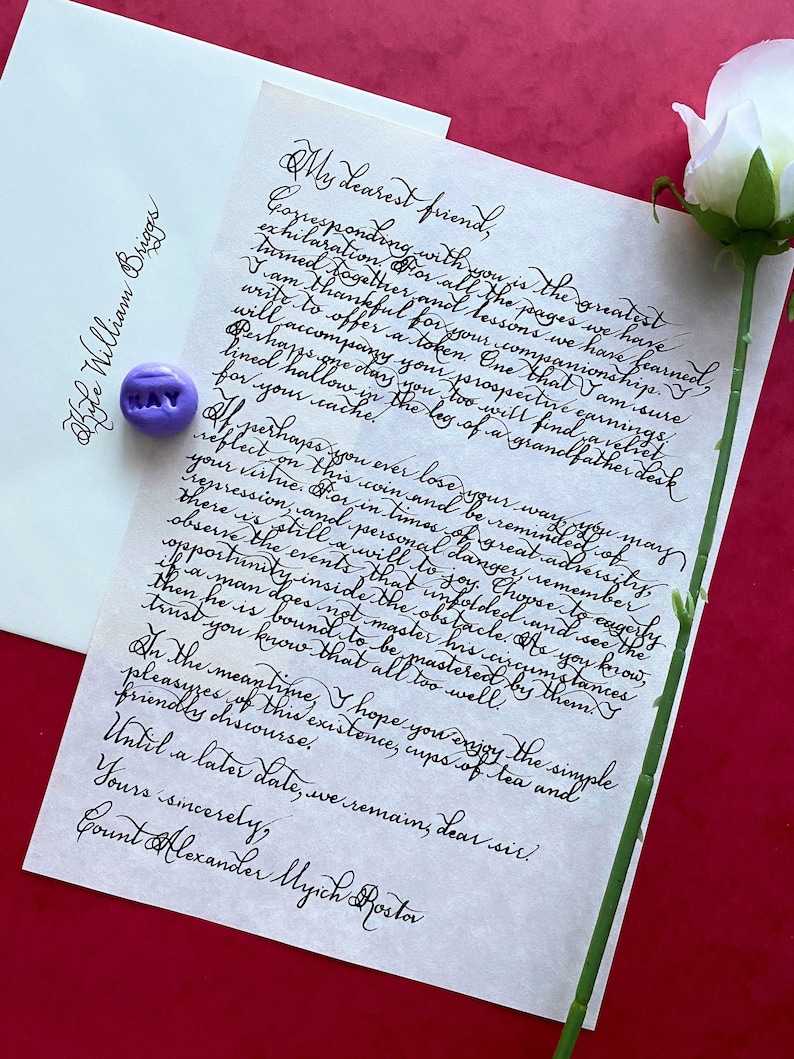 Kyle William Briggs
KAY
My dearest friend,
Corresponding with you is the greatest
exhilaration. For all the pages we have
turned together and lessons we have learned,
I am thankful for your companionship. I
write to offer a token. One that I am sure
will accompany your prospective earnings.
Perhaps one day you too will find a velvet
lined hallow in the leg of a grandfather desk
for your cache.
If perhaps you ever lose your way, you may
reflect on this coin and be reminded of
your virtue. For in times of great adversity,
repression, and personal danger, remember
there is still a will to joy. Choose to eagerly
observe the events that unfolded and see the
opportunity inside the obstacle. As you know,
if a man does not master his circumstances
then he is bound to be mastered by them. I
trust you know that all too well.
In the meantime, I hope you enjoy the simple
pleasures of this existence, cups of tea and
friendly discourse.
Until a later date, we remain, dear sir!
Yours sincerely,
Count Alexander Ilyich Rostov